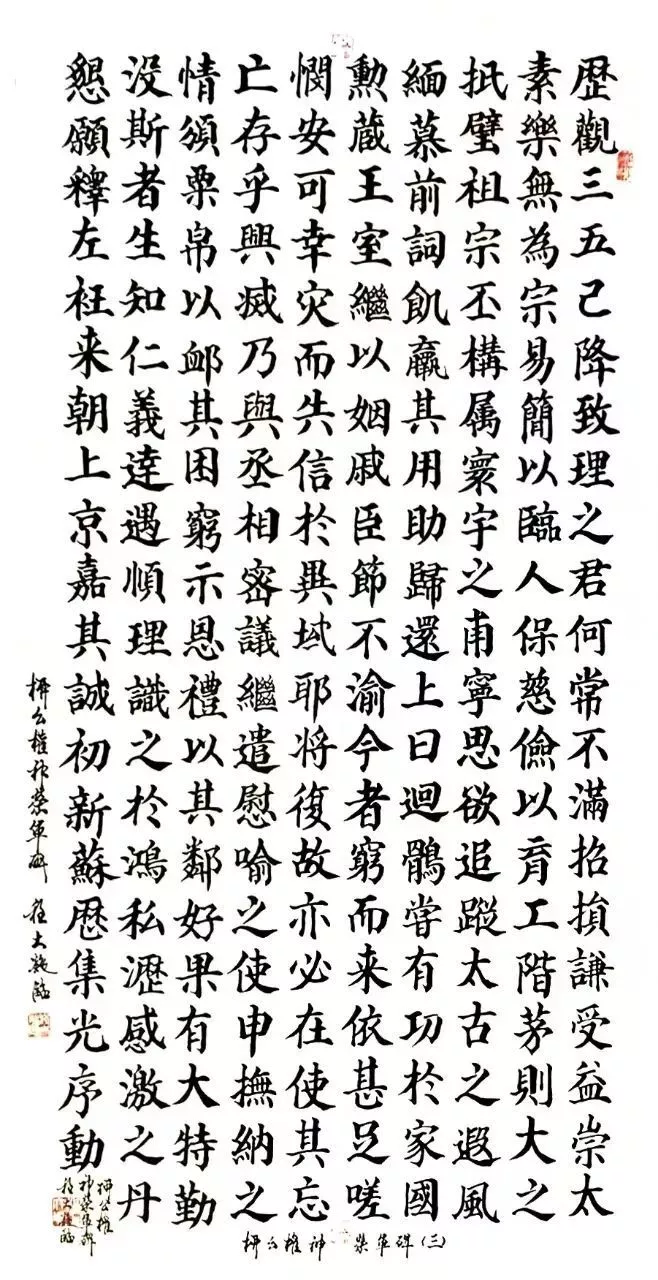 歷觀三五已降致理之君何常不滿招損謙受益崇太
素樂無為宗易簡以臨人保慈儉以育工階茅則大之
抵璧祖宗丕構属寰宇之甫寧思欲追蹤太古之遐風
緬慕前詞飢羸其用助歸還上曰迴鶻嘗有功於家國
勲蔵王室繼以姻戚臣節不渝今者窮而来依甚足嗟
憫安可幸灾而失信於異域耶将復故亦必在使其忘
亡存乎興滅乃與丞相密議繼遣慰喻之使申撫納之
情頒粟帛以䘏其困窮示恩禮以其鄰好果有大特勤
没斯者生知仁義達遇順理識之於鴻私瀝感激之丹
懇願釋左衽来朝上京嘉其誠初新蘇歷集光序動
柳公權神策軍碑 大臨
柳公權
神策軍碑
大臨
柳公權神策軍碑(三)